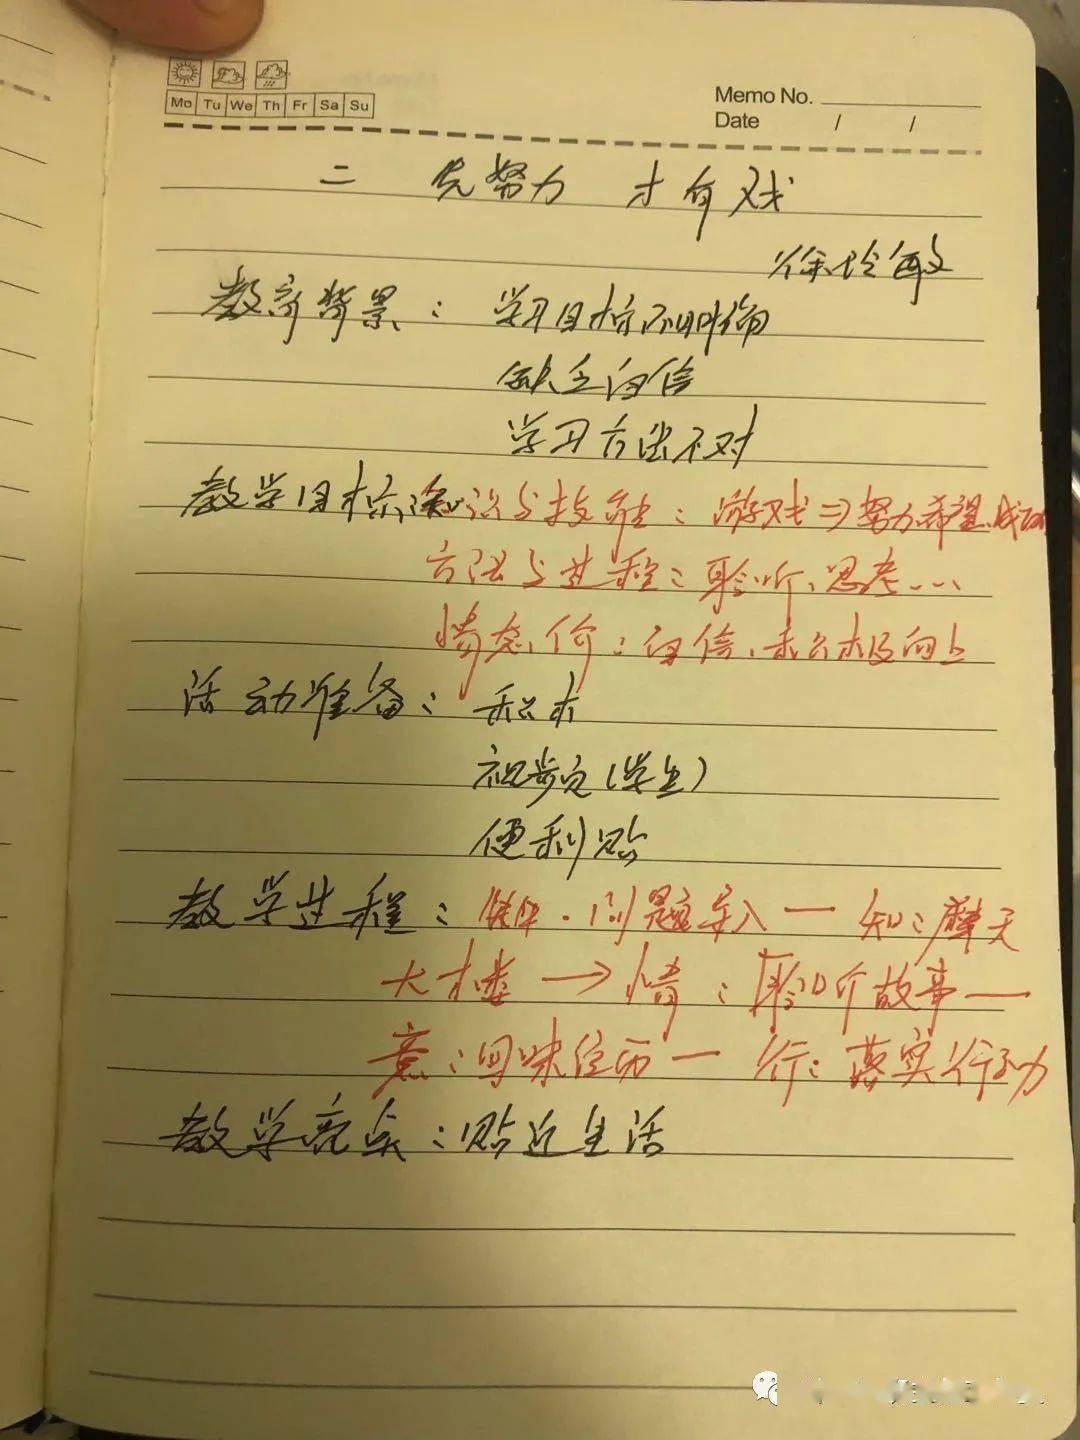 Mo Tu We Th Fr Sa Su
Memo No.
Date / /
二 先努力 才有戏
徐玲敏
教育背景：学习目标不明确
缺乏自信
学习方法不对
教学目标：知识与技能：游戏⇒努力、希望、成功
方法与过程：聆听、思考……
情态价：自信、积极向上
活动准备：积木
视频（学生）
便利贴
教学过程：问题导入—知：摩天
大楼→情：聆听故事—
意：回味经历—行：落实行动
教学亮点：贴近生活